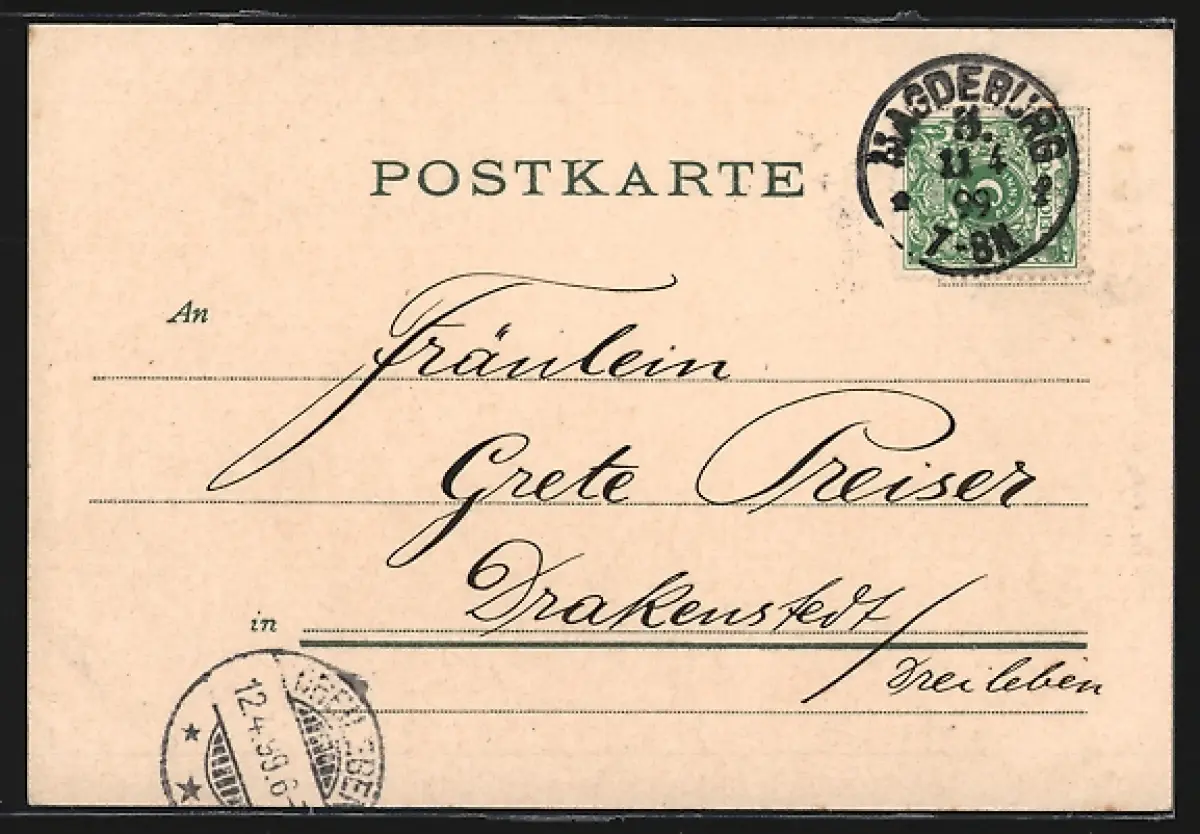 POSTKARTE
MAGDEBURG
11 4
99
7-8N.
An
Fräulein
Grete Preiser
in
Drakenstedt/
Dreileben
DREILEBEN
12.4.99.6-